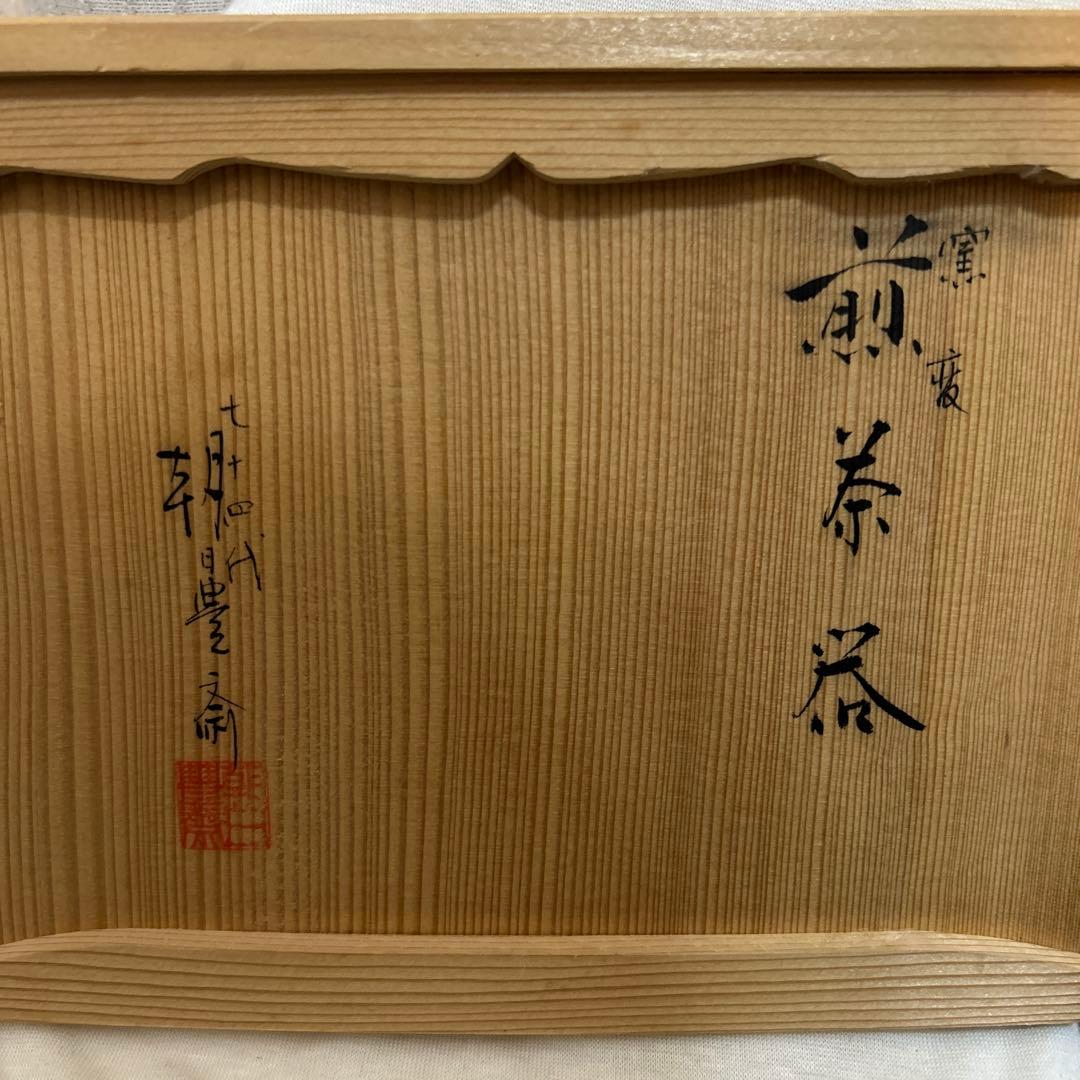 窯変
煎茶器
七十四代
朝日豊斎